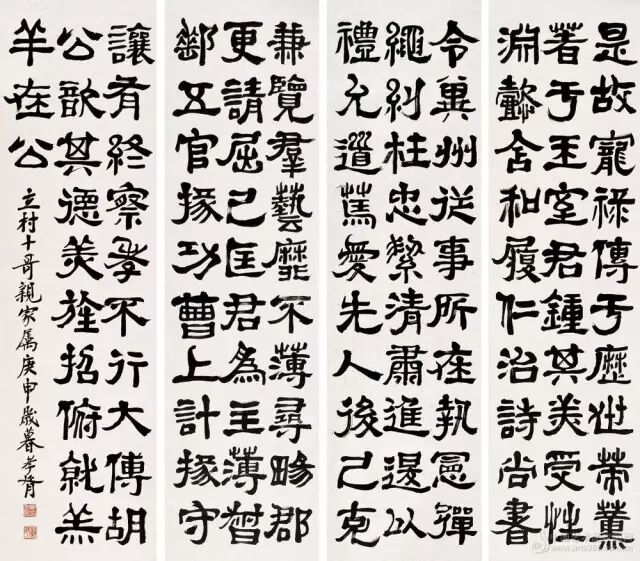 是故寵祿傳于歷世策薰
著于王室君鍾其美受性
淵懿含和履仁治詩尚書
令冀州從事所在執憲彈
繩糾枉忠絜清肅進退以
禮允道篤愛先人後己克
兼覽羣藝靡不薄尋暢郡
更請屈己匡君為主薄督
郵五官掾功曹上計掾守
讓有終察孝不行大傅胡
公歆其德美旌招俯就羔
羊在公
立村十哥親家屬庚申歲暮孝胥